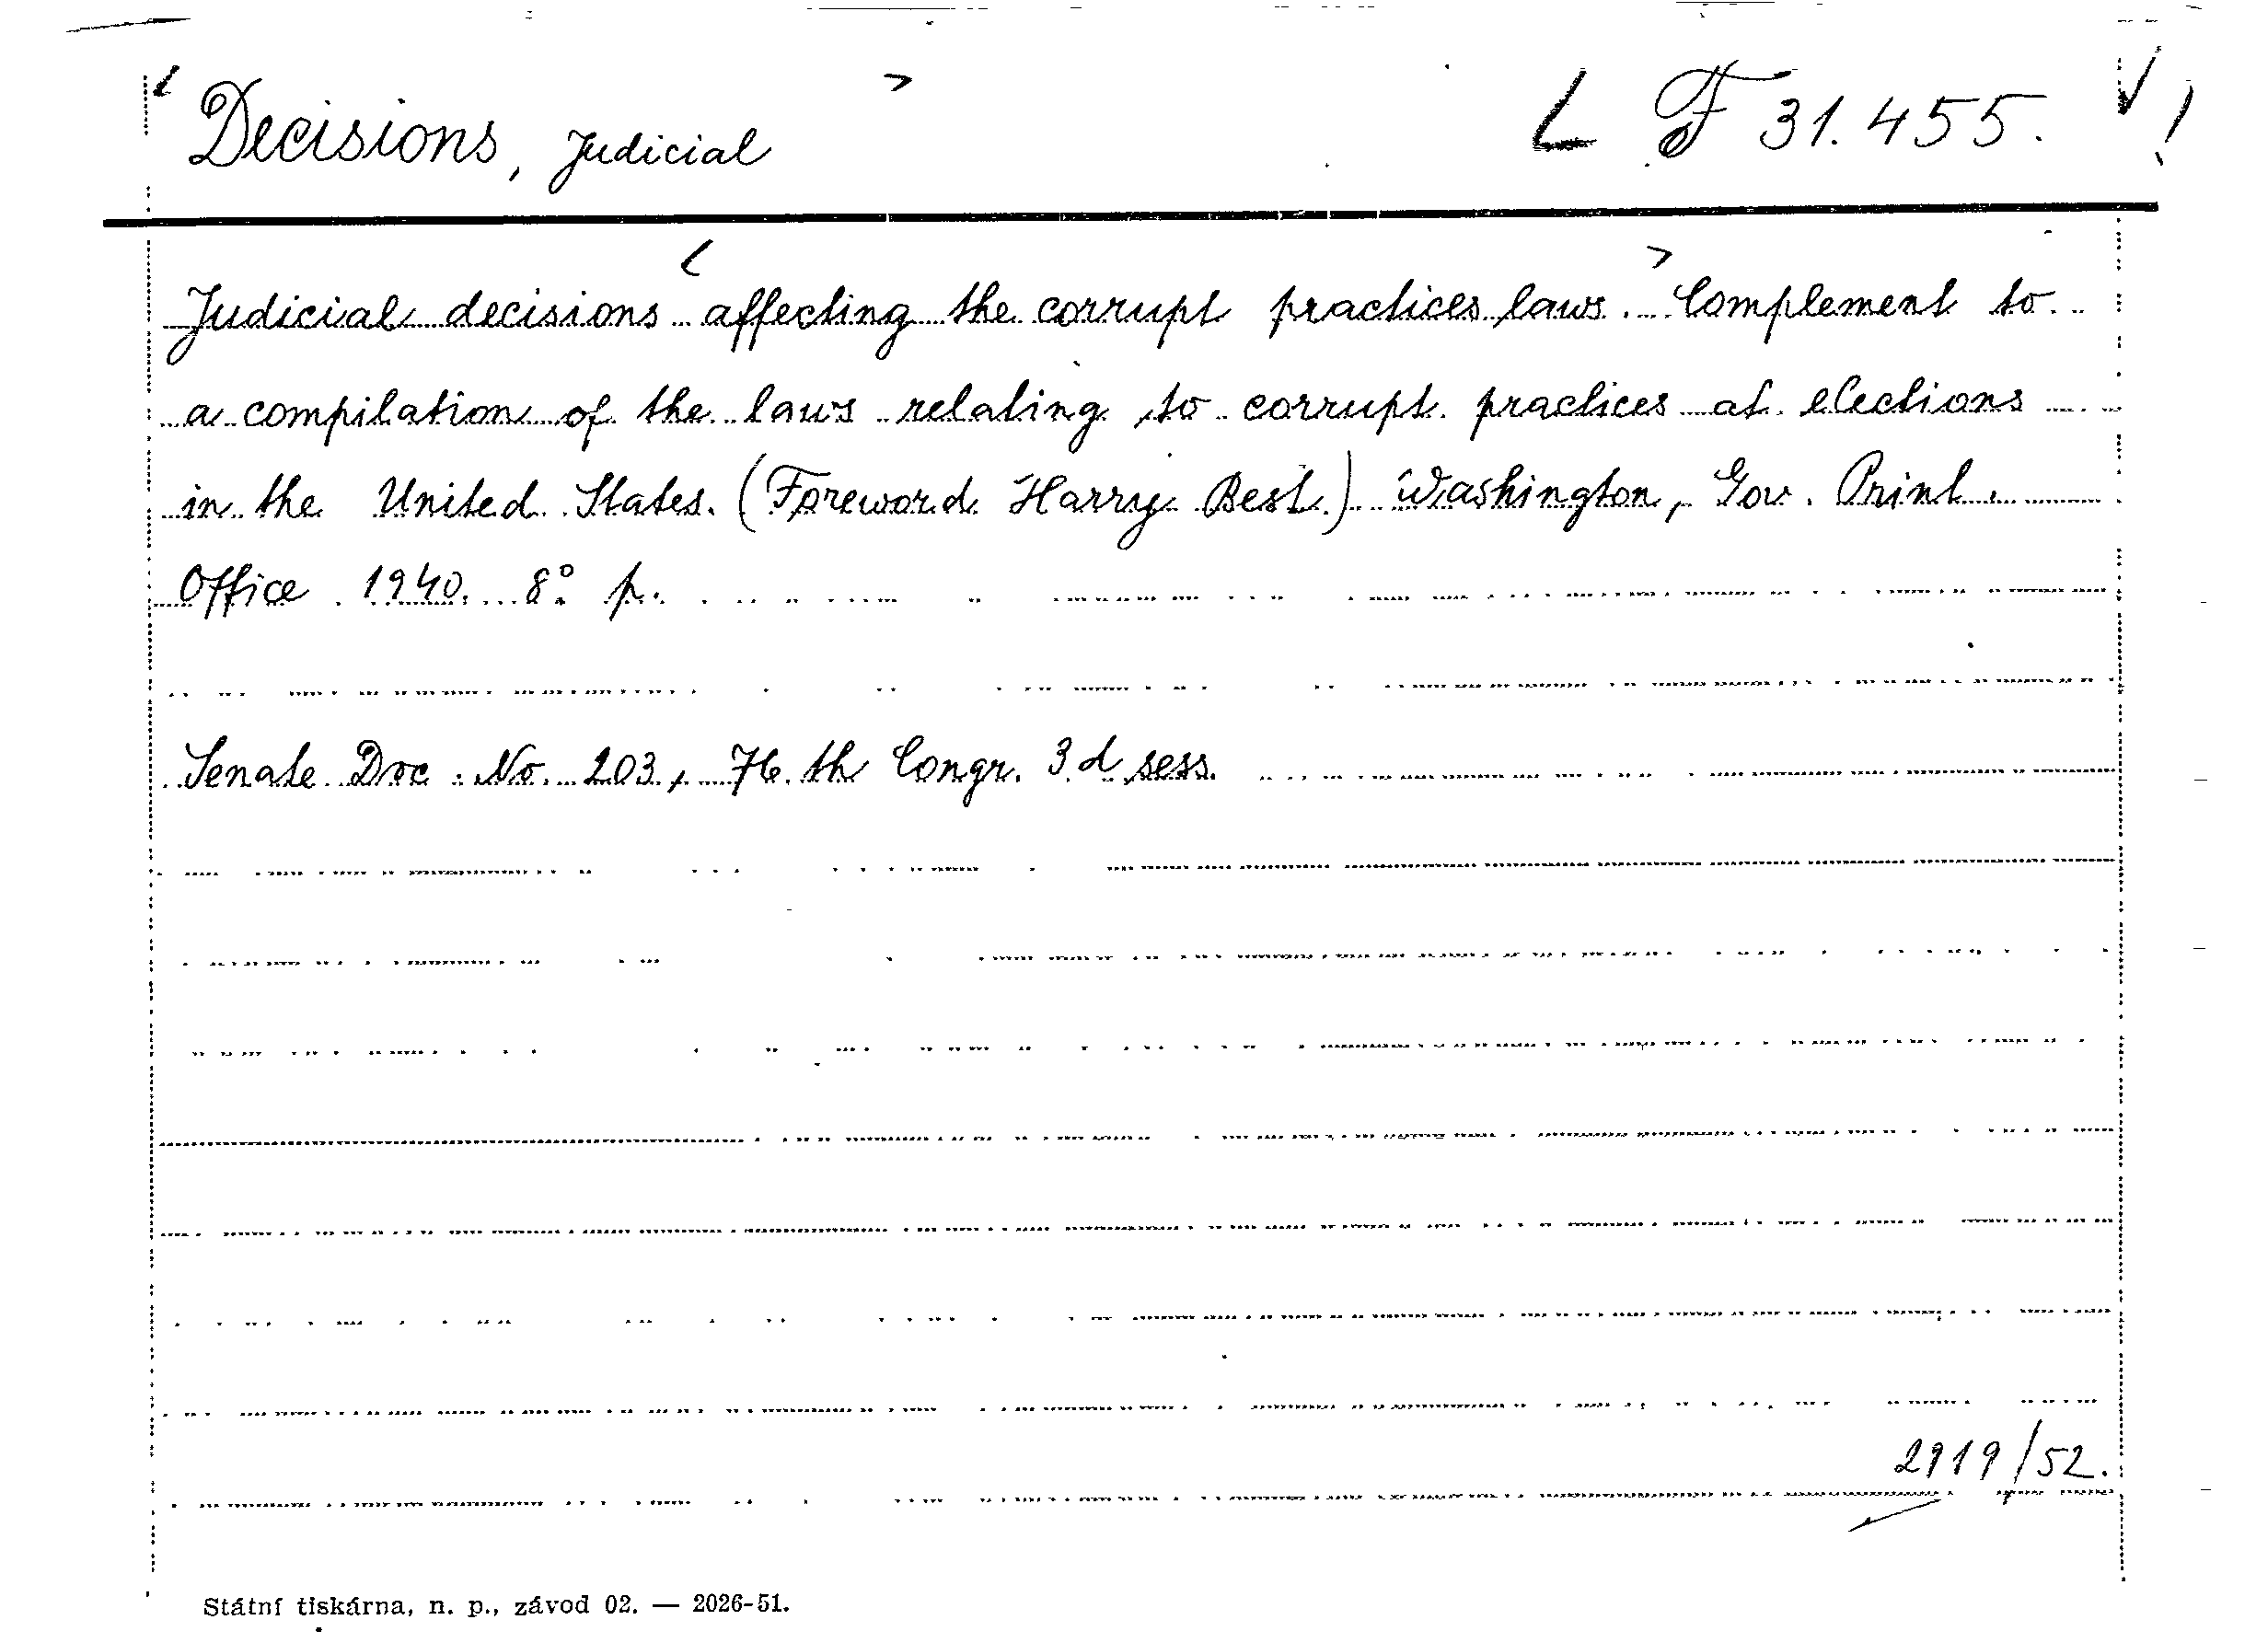 Decisions, Judicial L F 31.455. !
Judicial decisions affecting the corrupt practices laws. Complement to
a compilation of the laws relating to corrupt practices at elections
in the United States. (Foreword Harry Best.) Washington, Gov. Print.
Office 1940. 8° p.
Senate Doc. No. 203, 76.th Congr. 3.d sess.
2919/52.
Státní tiskárna, n. p., závod 02. — 2026-51.